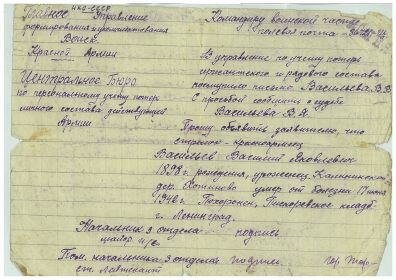 НКО-СССР
Главное Управление
формирования и укомплектования
Войск
Красной Армии
Центральное Бюро
по персональному учету потерь
личного состава действующей
Армии
Командиру воинской части
полевая почта
В управление по учету потерь
сержантского и рядового состава
поступило письмо Васильева В.В.
С просьбой сообщить о судьбе
Васильева В.Я.
Прошу объявить заявителю, что
красноармеец
Васильев Василий Яковлевич
1898 г. рождения, уроженец Калининской
дер. Хотилово умер от болезни 17 июня
194 г. Похоронен, Пискаревское кладб.
г. Ленинград.
Начальник 3 отдела подпись
майор и/с
Пом. начальника 3 отдела подпись
ст. Лейтенант